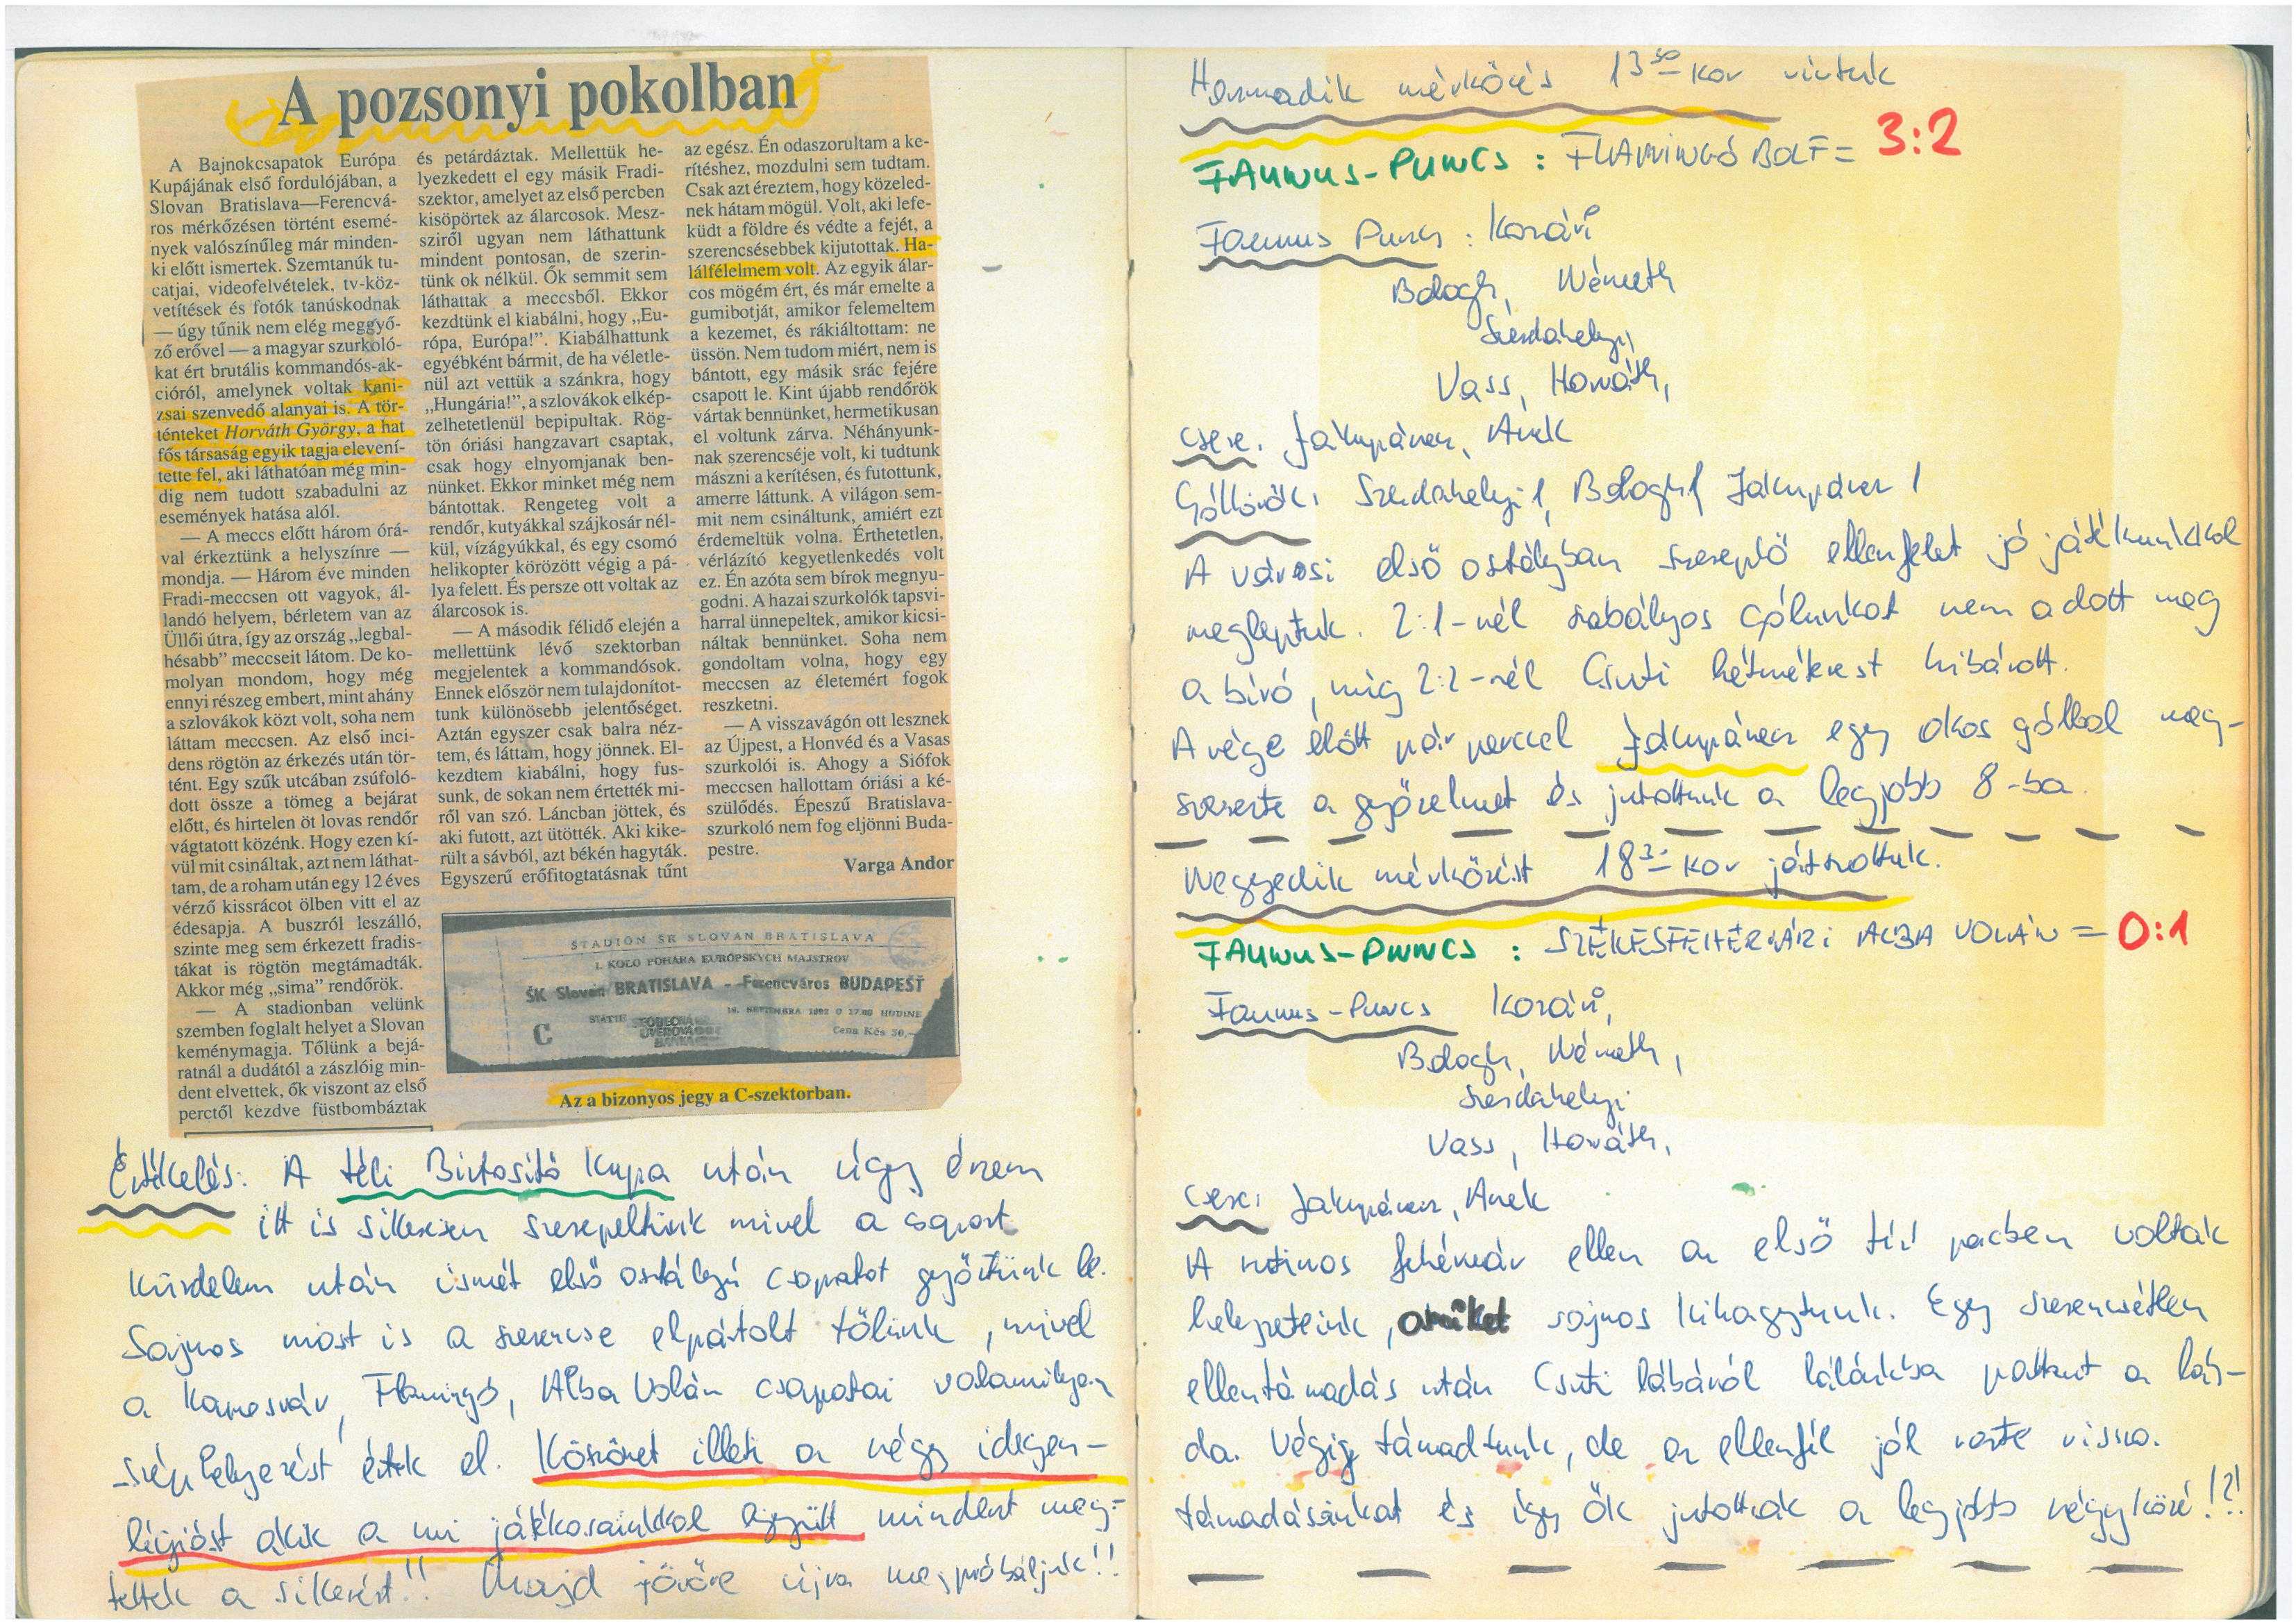 A pozsonyi pokolban
A Bajnokcsapatok Európa
Kupájának első fordulójában, a
Slovan Bratislava—Ferencvá-
ros mérkőzésen történt esemé-
nyek valószínűleg már minden-
ki előtt ismertek. Szemtanúk tu-
catjai, videofelvételek, tv-köz-
vetítések és fotók tanúskodnak
— úgy tűnik nem elég meggyő-
ző erővel — a magyar szurkoló-
kat ért brutális kommandós-ak-
cióról, amelynek voltak kani-
zsai szenvedő alanyai is. A tör-
ténteket Horváth György, a hat
fős társaság egyik tagja elevení-
tette fel, aki láthatóan még min-
dig nem tudott szabadulni az
események hatása alól.
— A meccs előtt három órá-
val érkeztünk a helyszínre —
mondja. — Három éve minden
Fradi-meccsen ott vagyok, ál-
landó helyem, bérletem van az
Üllői útra, így az ország „legbal-
hésabb” meccseit látom. De ko-
molyan mondom, hogy még
ennyi részeg embert, mint ahány
a szlovákok közt volt, soha nem
láttam meccsen. Az első inci-
dens rögtön az érkezés után tör-
tént. Egy szűk utcában zsúfoló-
dott össze a tömeg a bejárat
előtt, és hirtelen öt lovas rendőr
vágtatott közénk. Hogy ezen kí-
vül mit csináltak, azt nem láthat-
tam, de a roham után egy 12 éves
vérző kissrácot ölben vitt el az
édesapja. A buszról leszálló,
szinte meg sem érkezett fradis-
tákat is rögtön megtámadták.
Akkor még „sima” rendőrök.
— A stadionban velünk
szemben foglalt helyet a Slovan
keménymagja. Tőlünk a bejá-
ratnál a dudától a zászlóig min-
dent elvettek, ők viszont az első
perctől kezdve füstbombáztak
és petárdáztak. Mellettük he-
lyezkedett el egy másik Fradi-
szektor, amelyet az első percben
kisöpörtek az álarcosok. Mesz-
sziről ugyan nem láthattunk
mindent pontosan, de szerin-
tünk ok nélkül. Ők semmit sem
láthattak a meccsből. Ekkor
kezdtünk el kiabálni, hogy „Eu-
rópa, Európa!”. Kiabálhattunk
egyébként bármit, de ha véletle-
nül azt vettük a szánkra, hogy
„Hungária!”, a szlovákok elkép-
zelhetetlenül bepipultak. Rög-
tön óriási hangzavart csaptak,
csak hogy elnyomjanak ben-
nünket. Ekkor minket még nem
bántottak. Rengeteg volt a
rendőr, kutyákkal szájkosár nél-
kül, vízágyúkkal, és egy csomó
helikopter körözött végig a pá-
lya felett. És persze ott voltak az
álarcosok is.
— A második félidő elején a
mellettünk lévő szektorban
megjelentek a kommandósok.
Ennek először nem tulajdonítot-
tunk különösebb jelentőséget.
Aztán egyszer csak balra néz-
tem, és láttam, hogy jönnek. El-
kezdtem kiabálni, hogy fus-
sunk, de sokan nem értették mi-
ről van szó. Láncban jöttek, és
aki futott, azt ütötték. Aki kike-
rült a sávból, azt békén hagyták.
Egyszerű erőfitogtatásnak tűnt
az egész. Én odaszorultam a ke-
rítéshez, mozdulni sem tudtam.
Csak azt éreztem, hogy közeled-
nek hátam mögül. Volt, aki lefe-
küdt a földre és védte a fejét, a
szerencsésebbek kijutottak. Ha-
lálfélelmem volt. Az egyik álar-
cos mögém ért, és már emelte a
gumibotját, amikor felemeltem
a kezemet, és rákiáltottam: ne
üssön. Nem tudom miért, nem is
bántott, egy másik srác fejére
csapott le. Kint újabb rendőrök
vártak bennünket, hermetikusan
el voltunk zárva. Néhányunk-
nak szerencséje volt, ki tudtunk
mászni a kerítésen, és futottunk,
amerre láttunk. A világon sem-
mit nem csináltunk, amiért ezt
érdemeltük volna. Érthetetlen,
vérlázító kegyetlenkedés volt
ez. Én azóta sem bírok megnyu-
godni. A hazai szurkolók tapsvi-
harral ünnepeltek, amikor kicsi-
náltak bennünket. Soha nem
gondoltam volna, hogy egy
meccsen az életemért fogok
reszketni.
— A visszavágón ott lesznek
az Újpest, a Honvéd és a Vasas
szurkolói is. Ahogy a Siófok
meccsen hallottam óriási a ké-
szülődés. Épeszű Bratislava-
szurkoló nem fog eljönni Buda-
pestre.
Varga Andor
STADIÓN ŠK SLOVAN BRATISLAVA
I. KOLO POHÁRA EURÓPSKYCH MAJSTROV
ŠK Slovan BRATISLAVA - Ferencváros BUDAPEŠŤ
16. SEPTEMBRA 1992 O 17.00 HODINE
C
STÁTIE
Cena Kčs 30,—
Az a bizonyos jegy a C-szektorban.
Értékelés: A téli Biztosító Kupa után úgy érzem
itt is sikeresen szerepeltünk mivel a csoport
küzdelem után ismét első osztályú csapatot győztünk le.
Sajnos most is a szerencse elpártolt tőlünk, mivel
a Kaposvár, Flamingó, Alba Volán csapatai valamilyen
szép helyezést értek el. Köszönet illeti a négy idegen-
légióst akik a mi játékosainkkal együtt mindent meg-
tettek a sikerért!! Majd jövőre újra megpróbáljuk!!
Harmadik mérkőzés 13³⁰-kor vívtuk
FAUNUS-PUNCS : FLAMINGÓ BOLT = 3:2
Faunus Puncs : Korári
Balogh, Németh
Szerdahelyi,
Vass, Horváth,
csere: Jakupánecz, Anek
Góllövők: Szerdahelyi 1, Balogh 1, Jakupánecz 1
A városi első osztályban szereplő ellenfelet jó játékunkkal
megleptük. 2:1-nél szabályos gólunkat nem adott meg
a bíró, míg 2:2-nél Csuti hétméterest hibázott.
A vége előtt pár perccel Jakupánecz egy okos góllal meg-
szerezte a győzelmet és jutottunk a legjobb 8-ba.
Negyedik mérkőzést 18³⁰-kor játszottuk.
FAUNUS-PUNCS : SZÉKESFEHÉRVÁRI ALBA VOLÁN = 0:1
Faunus-Puncs Korári,
Balogh, Németh,
Szerdahelyi
Vass, Horváth,
Csere: Jakupánecz, Anek
A rutinos fehérvár ellen az első tíz percben voltak
helyzeteink, amiket sajnos kihagytunk. Egy szerencsétlen
ellentámadás után Csuti lábáról kapunkba pattant a lab-
da. Végig támadtunk, de az ellenfél jól verte vissza
támadásainkat és így ők jutottak a legjobb négy közé!?!